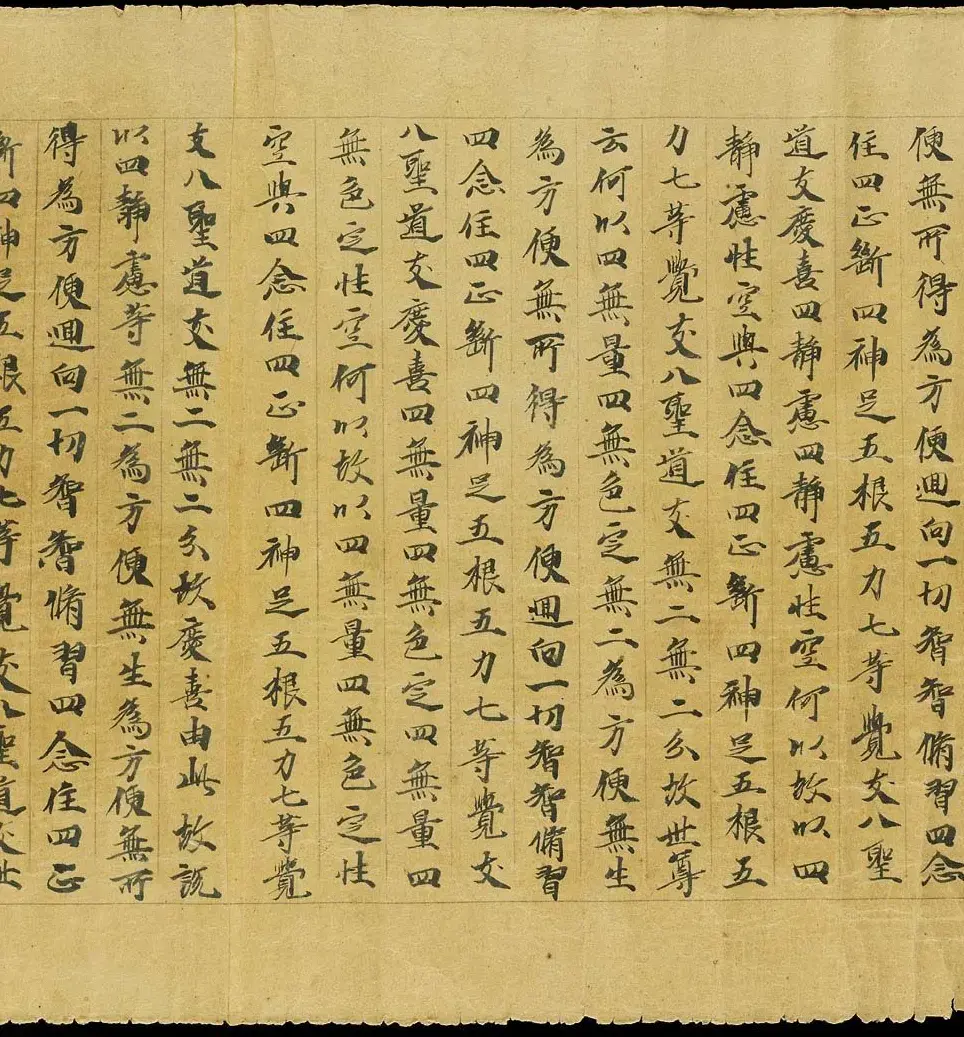 便無所得為方便迴向一切智智脩習四念
住四正斷四神足五根五力七等覺支八聖
道支慶喜四靜慮四靜慮性空何以故以四
靜慮性空與四念住四正斷四神足五根五
力七等覺支八聖道支無二無二分故世尊
云何以四無量四無色定無二為方便無生
為方便無所得為方便迴向一切智智脩習
四念住四正斷四神足五根五力七等覺支
八聖道支慶喜四無量四無色定四無量四
無色定性空何以故以四無量四無色定性
空與四念住四正斷四神足五根五力七等覺
支八聖道支無二無二分故慶喜由此故說
以四靜慮等無二為方便無生為方便無所
得為方便迴向一切智智脩習四念住四正
斷四神足五根五力七等覺支八聖道支世